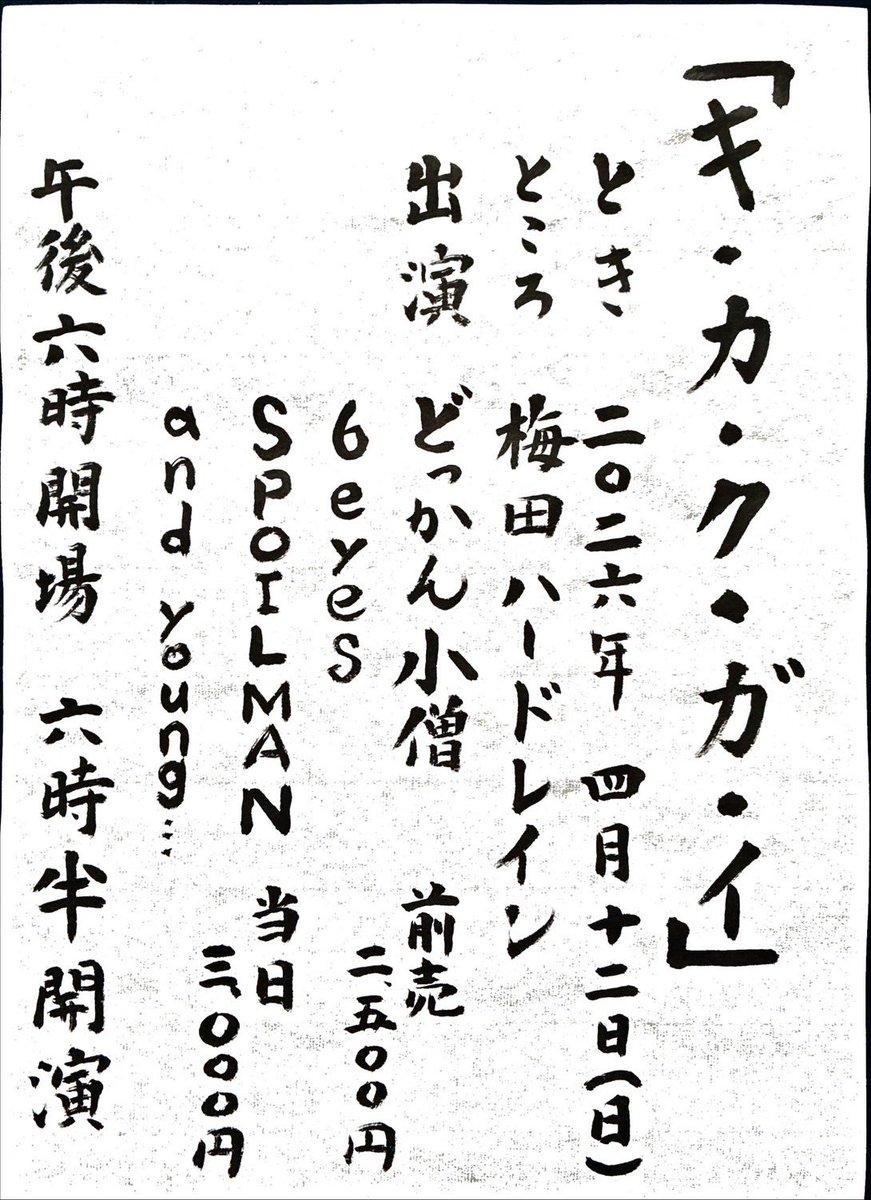 「キ・カ・ク・ガ・イ」
とき 二〇二六年 四月十二日(日)
ところ 梅田ハードレイン
出演 どっかん小僧
6eyes
SPOILMAN
and young…
前売
二、五〇〇円
当日
三、〇〇〇円
午後六時開場 六時半開演